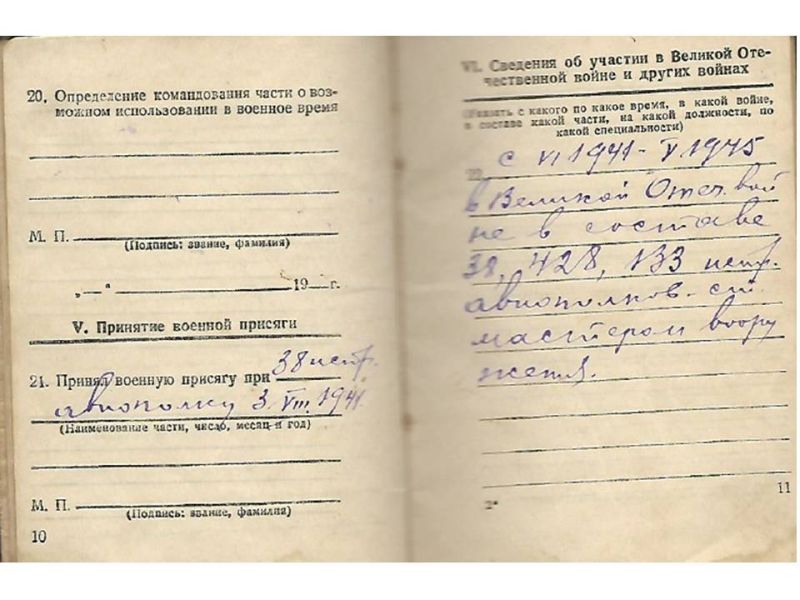 20. Определение командования части о воз-
можном использовании в военное время
М. П.
(Подпись: звание, фамилия)
„—“ 19 г.
V. Принятие военной присяги
21. Принял военную присягу при 38 истр.
авиополку 3. VIII. 1941
(Наименование части, число, месяц и год)
М. П.
(Подпись: звание, фамилия)
10
VI. Сведения об участии в Великой Оте-
чественной войне и других войнах
(Указать с какого по какое время, в какой войне,
в составе какой части, на какой должности, по
какой специальности)
22. с VI 1941 - V 1945
в Великой Отеч. вой
не в составе
38, 428, 133 истр.
авиополков. ст.
мастером воору
жения.
2*
11